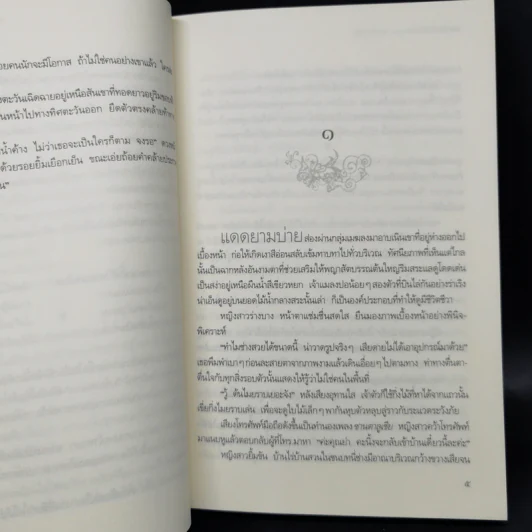 อยคนนักจะมีโอกาส ถ้าไม่ใช่คนอย่างเขาแล้ว ใคร
งตะวันเฉิดฉายอยู่เหนือสันเขาที่ทอดยาวอยู่ริม
นหน้าไปทางทิศตะวันออก ยืดตัวตรงคล้าย
น้ำค้าง ไม่ว่าเธอจะเป็นใครก็ตาม จงรอ"
ด้วยรอยยิ้มเยือกเย็น ขณะเอ่ยถ้อยคำคล้าย
น"
๑
แดดยามบ่าย ส่องผ่านกลุ่มเมฆลงมาอาบเนินเขาที่อยู่ห่างออกไป
เบื้องหน้า ก่อให้เกิดเงาสีอ่อนสลับเข้มทาบทาไปทั่วบริเวณ ทัศนียภาพที่เห็นแต่ไกล
นั้นเป็นฉากหลังอันงามตาที่ช่วยเสริมให้พญาสัตบรรณต้นใหญ่ริมสระแลดูโดดเด่น
เป็นสง่าอยู่เหนือผืนน้ำสีเขียวหยก เจ้าแมลงปอน้อยๆ สองตัวที่บินไล่กันอย่างร่าเริง
น่าเอ็นดูอยู่บนยอดไม้น้ำกลางสระนั้นเล่า ก็เป็นองค์ประกอบที่ทำให้ดูมีชีวิตชีวา
หญิงสาวร่างบาง หน้าตาแช่มชื่นสดใส ยืนมองภาพเบื้องหน้าอย่างพินิจ-
พิเคราะห์
"ทำไมช่างสวยได้ขนาดนี้ น่าวาดรูปจริงๆ เสียดายไม่ได้เอาอุปกรณ์มาด้วย"
เธอพึมพำเบาๆ ก่อนละสายตาจากภาพงามแล้วเดินเอื่อยๆ ไปตามทาง ท่าทางตื่นตา-
ตื่นใจกับทุกสิ่งรอบตัวนั้นแสดงให้รู้ว่าไม่ใช่คนในพื้นที่
"วู้ ต้นไมยราบเยอะจัง" หลังเสียงอุทานใส เจ้าตัวก็ใช้กิ่งไม้ที่หาได้จากแถวนั้น
เขี่ยกิ่งไมยราบเล่น เพื่อจะดูใบไม้เล็กๆ พากันหุบตัวหลุบลู่ราวกับระแวดระวังภัย
เสียงโทรศัพท์มือถือดังขึ้นเป็นทำนองเพลง หญิงสาวคว้าโทรศัพท์
มาแนบหูแล้วตอบกลับผู้ที่โทร.มาหา "ค่ะคุณย่า คะนิ้งจะกลับเข้าบ้านเดี๋ยวนี้ละค่ะ"
หญิงสาวยิ้มขัน บ้านไร่บ้านสวนในชนบทนี่ช่างมีอาณาบริเวณกว้างขวางเสียจน
๕